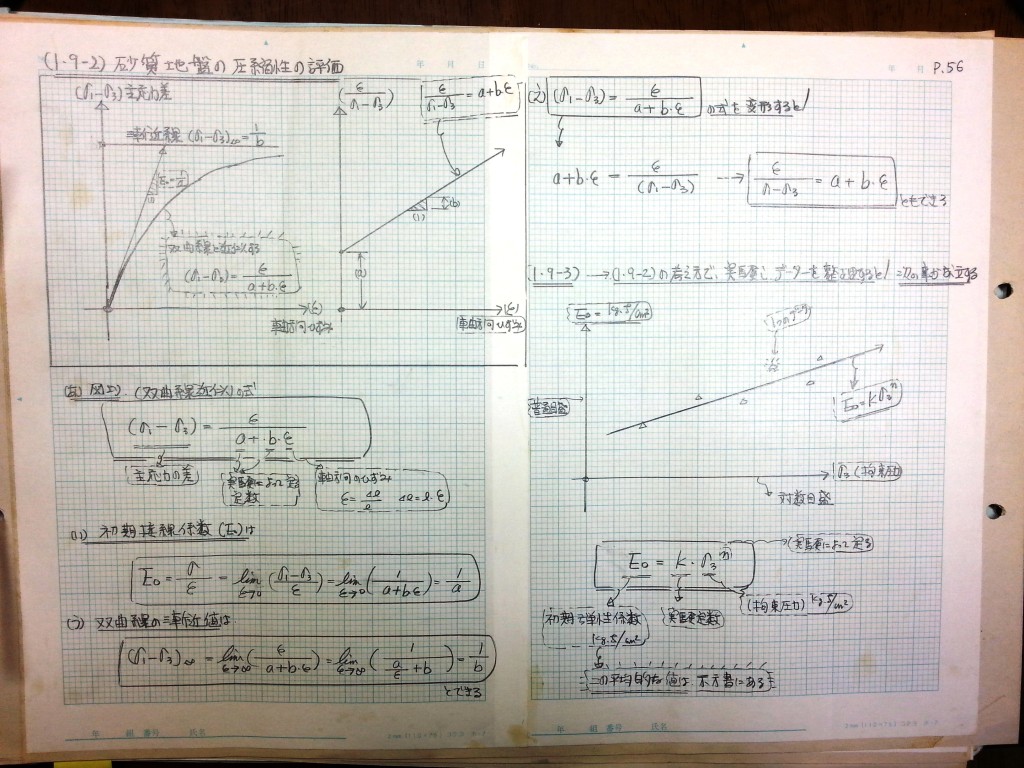 (1・9-2) 砂質地盤の圧縮性の評価
年 月 日
(σ1-σ3) 主応力差
漸近線 (σ1-σ3)∞ = 1/b
E0 = 1/a
(1)
双曲線で近似する
(σ1-σ3) = ε/(a+b・ε)
(ε)
軸方向ひずみ
(ε/(σ1-σ3))
ε/(σ1-σ3) = a+b・ε
(b)
(1)
(a)
(ε)
軸方向ひずみ
(双曲線近似)の式
(σ1-σ3) = ε/(a+b・ε)
主応力の差
実験によって定る
定数
軸方向のひずみ
ε = Δl/l Δl = l・ε
(1) 初期接線係数 (E0) は
E0 = σ/ε = lim ε→0 ((σ1-σ3)/ε) = lim ε→0 (1/(a+bε)) = 1/a
(2) 双曲線の漸近値は
(σ1-σ3)∞ = lim ε→∞ (ε/(a+b・ε)) = lim ε→∞ (1/(a/ε+b)) = 1/b
とできる
年 組 番号 氏名
年 月
P.56
(σ1-σ3) = ε/(a+b・ε) の式を変形すると
a+b・ε = ε/(σ1-σ3) → ε/(σ1-σ3) = a+b・ε
ともできる
(1・9-3) → (1・9-2)の考え方で、実験データーを整理すると
E0 = kg・f/cm²
普通目盛
E0 = Kσ3ⁿ
σ3 (拘束圧力)
対数目盛
E0 = K・σ3ⁿ
実験によって定る
初期弾性係数
kg・f/cm²
実験定数
(拘束圧力) kg・f/cm²
この平均的な値は 示方書にある
年 組 番号 氏名